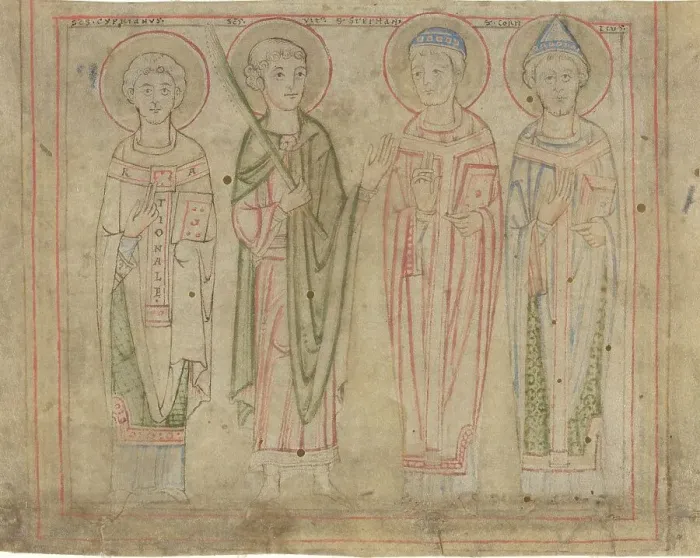 SCS. CYPRIANVS. SCS. VIT S. STEPHAN S. CORN ELIVS.
R A
T
I
O
N
A
L
E